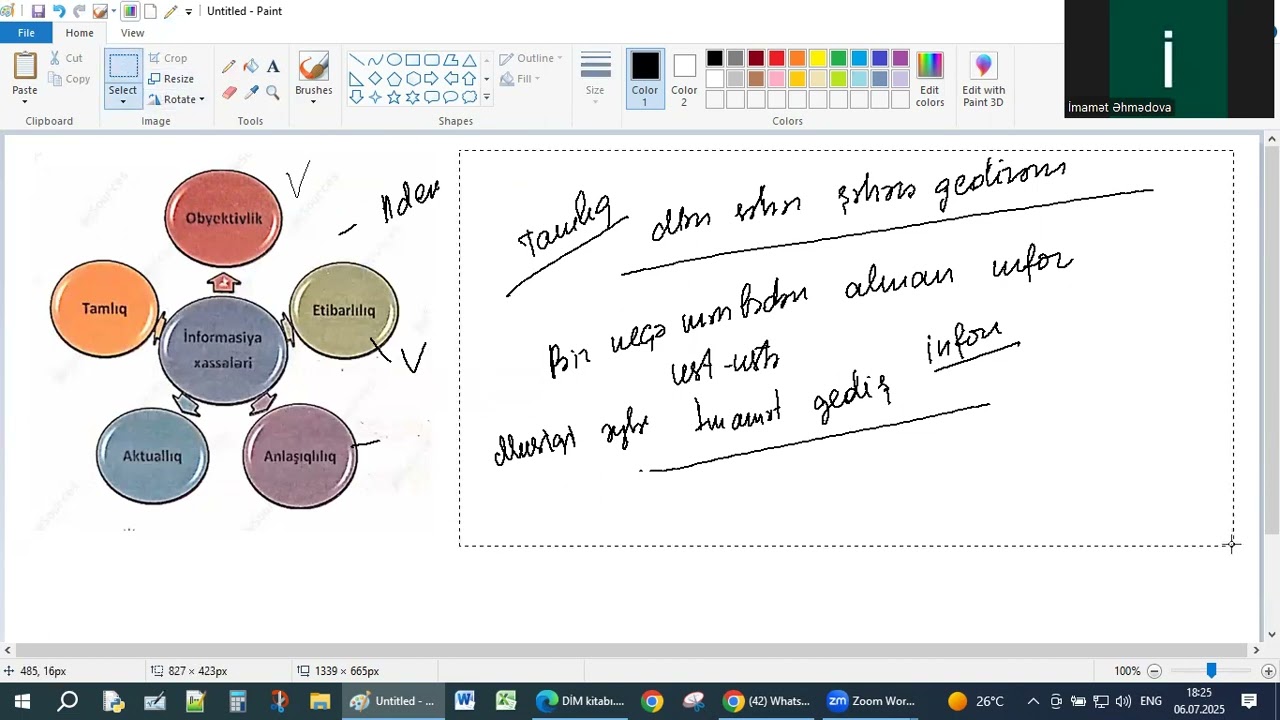 Untitled - Paint
File
Home
View
Paste
Cut
Copy
Clipboard
Select
Crop
Resize
Rotate
Image
Tools
Brushes
Shapes
Outline
Fill
Size
Color 1
Color 2
Edit colors
Edit with Paint 3D
Colors
i
İmamət Əhmədova
Obyektivlik
Tamlıq
Etibarlılıq
İnformasiya xassələri
Aktuallıq
Anlaşıqlılıq
V
V
Tamlıq
şəhərə gedirəm
Bir neçə mənbədən alınan infor
üst-üstə
infor
İmamət gediş
485, 16px
827 × 423px
1339 × 665px
100%
Untitled - ...
DİM kitabı....
(42) Whats...
Zoom Wor...
26°C
ENG
18:25
06.07.2025